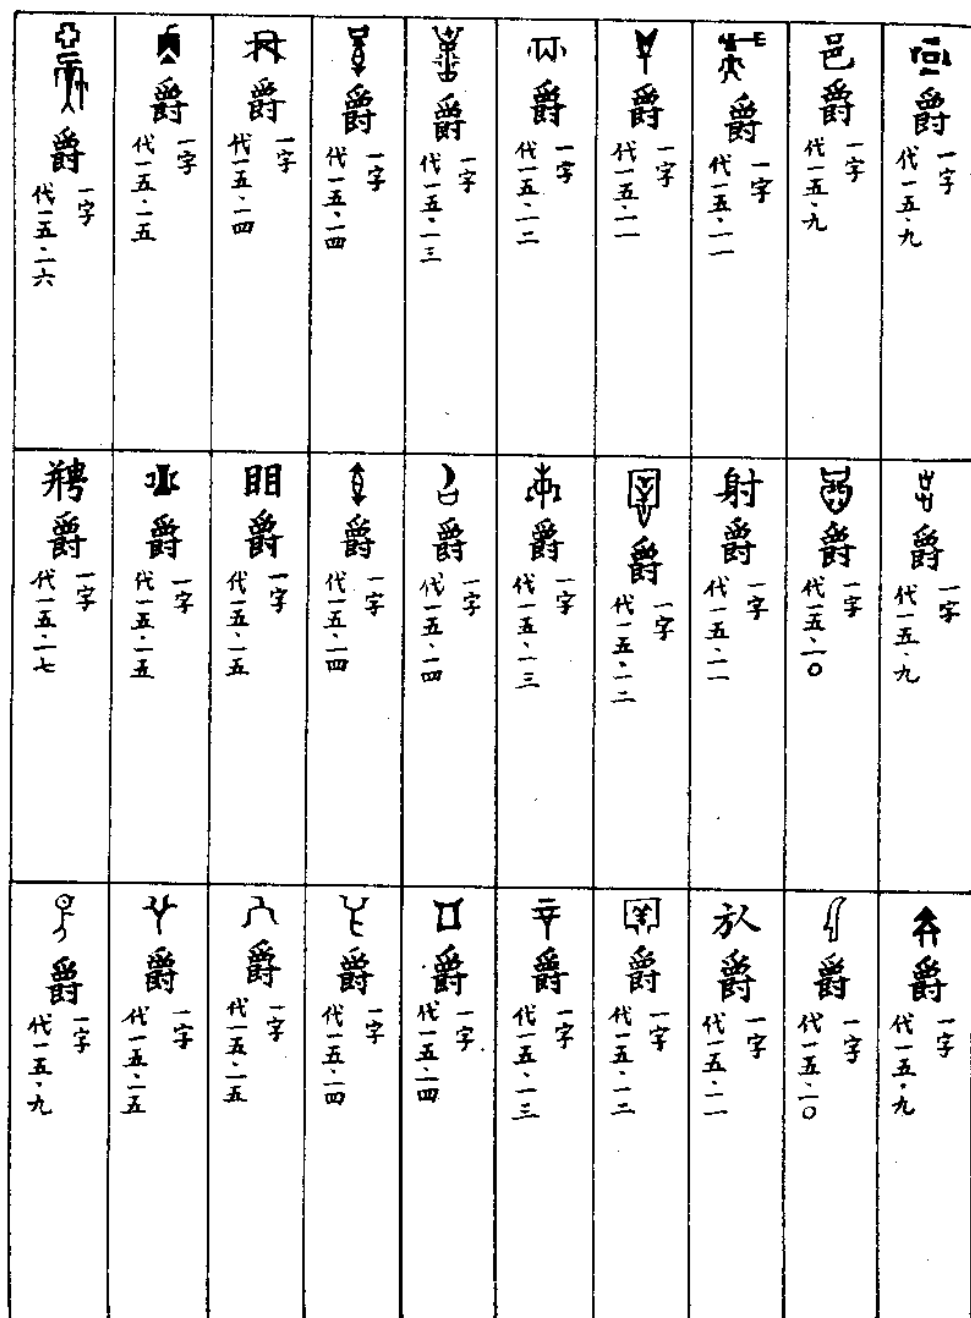 爵
一字
代一五、九
爵
一字
代一五、九
爵
一字
代一五、九
邑爵
一字
代一五、九
爵
一字
代一五、一〇
爵
一字
代一五、一〇
爵
一字
代一五、一一
射爵
一字
代一五、一一
爵
一字
代一五、一一
爵
一字
代一五、一一
爵
一字
代一五、一二
爵
一字
代一五、一二
爵
一字
代一五、一二
爵
一字
代一五、一三
爵
一字
代一五、一三
爵
一字
代一五、一三
爵
一字
代一五、一四
爵
一字
代一五、一四
爵
一字
代一五、一四
爵
一字
代一五、一四
爵
一字
代一五、一四
爵
一字
代一五、一四
明爵
一字
代一五、一五
爵
一字
代一五、一五
爵
一字
代一五、一五
爵
一字
代一五、一五
爵
一字
代一五、一五
爵
一字
代一五、一六
爵
一字
代一五、一七
爵
一字
代一五、九